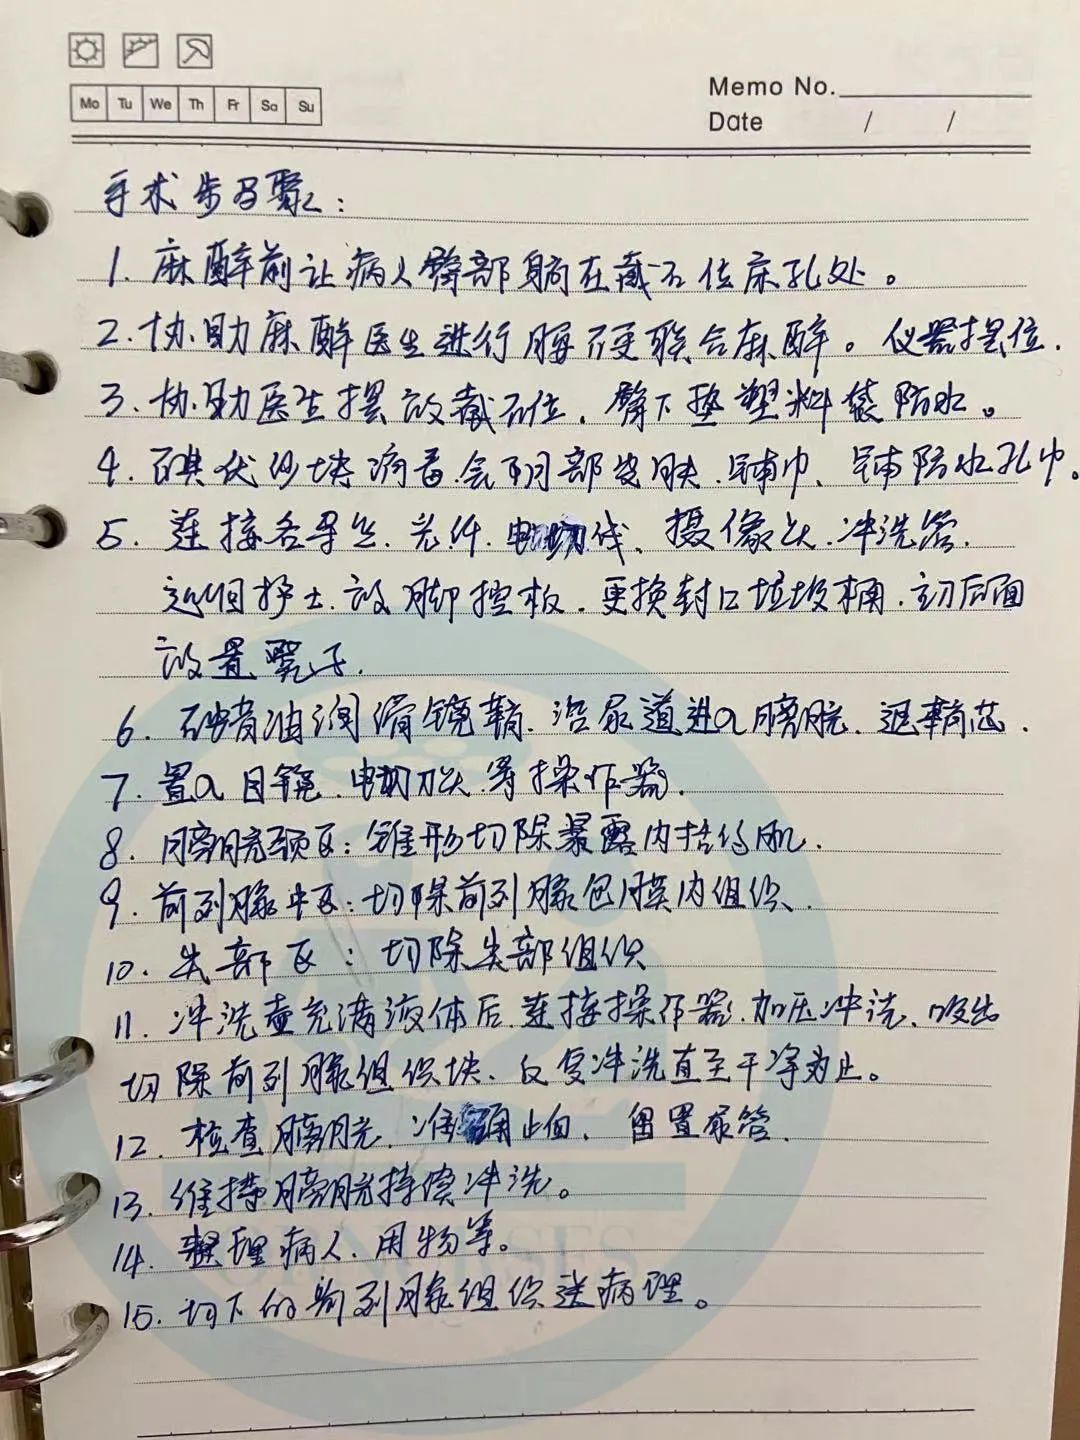 Mo Tu We Th Fr Sa Su
Memo No.
Date / /
手术步骤:
1. 麻醉前让病人臀部躺在截石位床孔处。
2. 协助麻醉医生进行腰硬联合麻醉。仪器摆位.
3. 协助医生摆放截石位,臀下垫塑料袋防水。
4. 碘伏纱块消毒会阴部皮肤.铺巾、铺防水孔巾。
5. 连接各导丝.光纤.电切线、摄像头.冲洗管.
巡回护士.放脚控板.更换封口垃圾桶.主刀后面
放置凳子.
6. 石蜡油润滑镜鞘.沿尿道进入膀胱.退鞘芯.
7. 置入目镜.电切刀头.等操作器.
8. 膀胱颈区:锥形切除暴露内括约肌.
9. 前列腺中区:切除前列腺包膜内组织.
10. 尖部区:切除尖部组织
11. 冲洗壶充满液体后.连接操作器.加压冲洗、吸出
切除前列腺组织块、反复冲洗直至干净为止。
12. 检查膀胱.准确止血、留置尿管.
13. 维持膀胱持续冲洗。
14. 整理病人、用物等。
15. 切下的前列腺组织送病理。